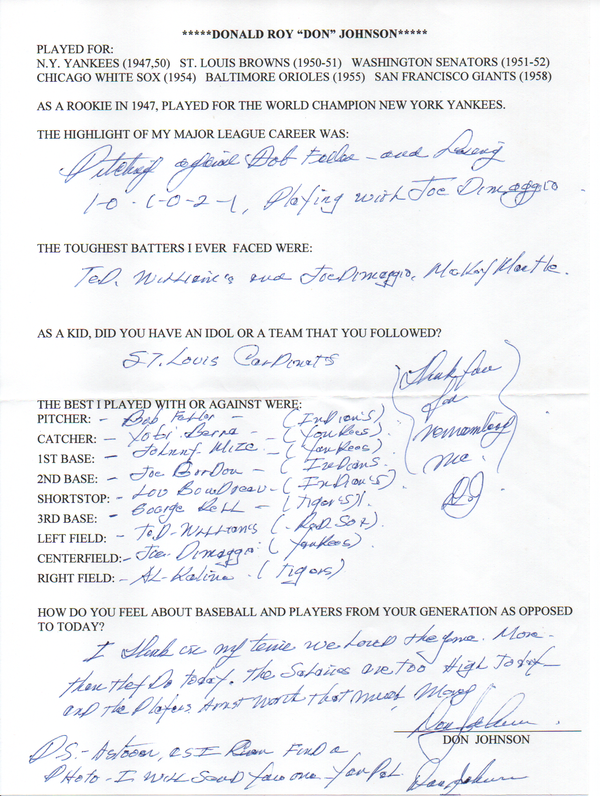 *****DONALD ROY “DON” JOHNSON*****
PLAYED FOR:
N.Y. YANKEES (1947,50) ST. LOUIS BROWNS (1950-51) WASHINGTON SENATORS (1951-52)
CHICAGO WHITE SOX (1954) BALTIMORE ORIOLES (1955) SAN FRANCISCO GIANTS (1958)
AS A ROOKIE IN 1947, PLAYED FOR THE WORLD CHAMPION NEW YORK YANKEES.
THE HIGHLIGHT OF MY MAJOR LEAGUE CAREER WAS:
Pitching against Bob Feller - and Losing
1-0 - 1-0 - 2-1, Playing with Joe Dimaggio
THE TOUGHEST BATTERS I EVER FACED WERE:
Ted. Williams and Joe Dimaggio, Mickey Mantle.
AS A KID, DID YOU HAVE AN IDOL OR A TEAM THAT YOU FOLLOWED?
ST. Louis Cardinals
Thank you
for
remembering
me.
DJ
THE BEST I PLAYED WITH OR AGAINST WERE:
PITCHER: - Bob Feller - (Indians)
CATCHER: - Yogi Berra - (Yankees)
1ST BASE: - Johnny Mize - (Yankees)
2ND BASE: - Joe Gordon - (Indians
SHORTSTOP: - Lou Boudreau - (Indians)
3RD BASE: - George Kell - (Tigers)
LEFT FIELD: - Ted-Williams (-Red Sox)
CENTERFIELD: - Joe Dimaggio (Yankees)
RIGHT FIELD: - AL-Kaline. (Tigers)
HOW DO YOU FEEL ABOUT BASEBALL AND PLAYERS FROM YOUR GENERATION AS OPPOSED
TO TODAY?
I think in my time we Loved the game. More-
then they Do today. The Salaries are too High Today-
and the Players Arnt worth that much Money
Don Johnson
DON JOHNSON
P.S. - As soon, as I can Find a
Photo - I will send you one - Your Pal Don Johnson